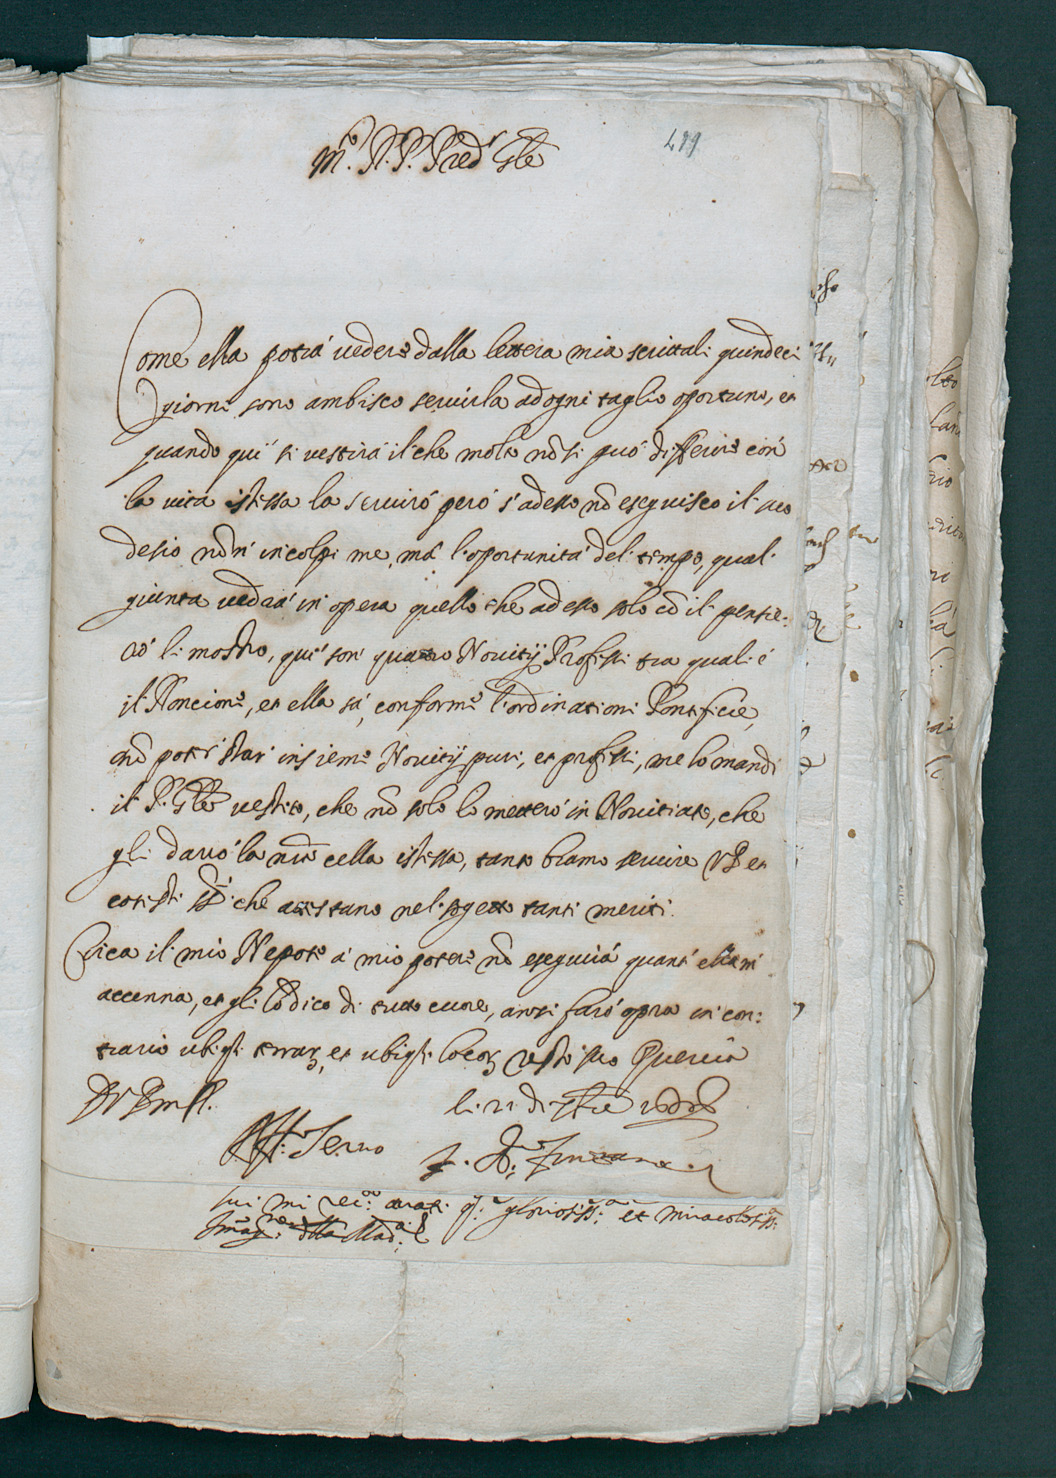 499
M.º R. P. Pred.r Gñle
Come ella potrà uedere dalla lettera mia scrittali quindeci
giorni sono ambisco seruirla ad ogni taglio oportuno, et
quando qui si vestirà il che molto nõ si può differire con
la vita istessa la seruirò però s'adesso nõ eseguisco il suo
desio non incolpi me, mà l'oportunità del tempo, qual
giunta uedrà in opera quello che adesso solo cõ il pensie:
rò li mostro, qui son quattro Nouitij Professi tra quali è
il Roncione, et ella sà, conforme l'ordinationi Pontificie,
nõ poter star insieme Nouitij puri, et professi, me lo mandi
il P. Gñle vestito, che nõ solo lo metterò in Nouitiato, che
gli darò la mia cella istessa, tanto bramo seruire V P et
cotesti che attestano nel sogetto tanti meriti.
Circa il mio Nepote à mio potere nõ eseguirà quant' ella mi
accenna, et gli lo dico di tutto cuore, anzi farò opra in con:
trario ubiqȝ terrarȝ, et ubiqȝ locorȝ resto suo Quercia
D V P M.
li 21 di
Aff. Seruo
F.
sui mi rac. orati gloriosiss.ª et miracolosiss.ª
Imag.ne della Mad.ª